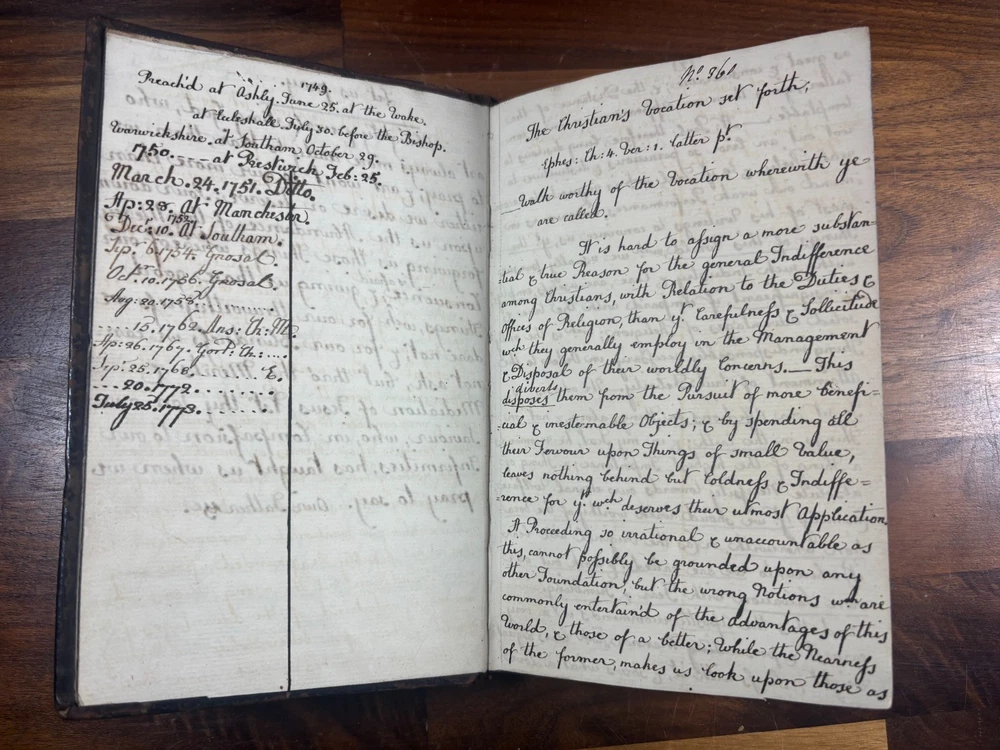 1749.
Preach'd at Ashly. June 25. at the Wake.
at Eccleshall July. 30. before the Bishop.
Warwickshire. at Southam. October 29.
1750. — — at Prestwich Feb: 25.
March. 24. 1751. Ditto.
Ap: 28. At Manchester.
1752
Dec: 10. At Southam.
Sep. 6 1754. Grosal.
Oct. 10. 1756. Grosal.
Aug: 20. 1758.
.... 15. 1762. Ch: M.
Ap: 26. 1767. Ch: ....
Sep. 25. 1768. ....... E.
--- 20. 1772. .......
July 25. 1773. ......
No. 361
The Christian's Vocation set forth;
Ephes: Ch: 4. Ver: 1. latter pt.
Walk worthy of the Vocation wherewith ye
are called.
It is hard to assign a more substan-
-tial & true Reason for the general Indifference
among Christians, with Relation to the Duties &
Offices of Religion, than yt. Carefulness & Sollicitude
wch they generally employ in the Management
& Disposal of their worldly Concerns. — This
diverts
disposes them from the Pursuit of more benefi-
-cial & inestemable Objects; & by spending all
their Fervour upon Things of small Value,
leaves nothing behind but Coldness & Indiffe=
=rence for yt. wch deserves their utmost Application
A Proceeding so irrational & unaccountable as
this, cannot possibly be grounded upon any
other Foundation, but the wrong Notions wch are
commonly entertain'd of the advantages of this
World, & those of a better; While the Nearness
of the former, makes us look upon those as